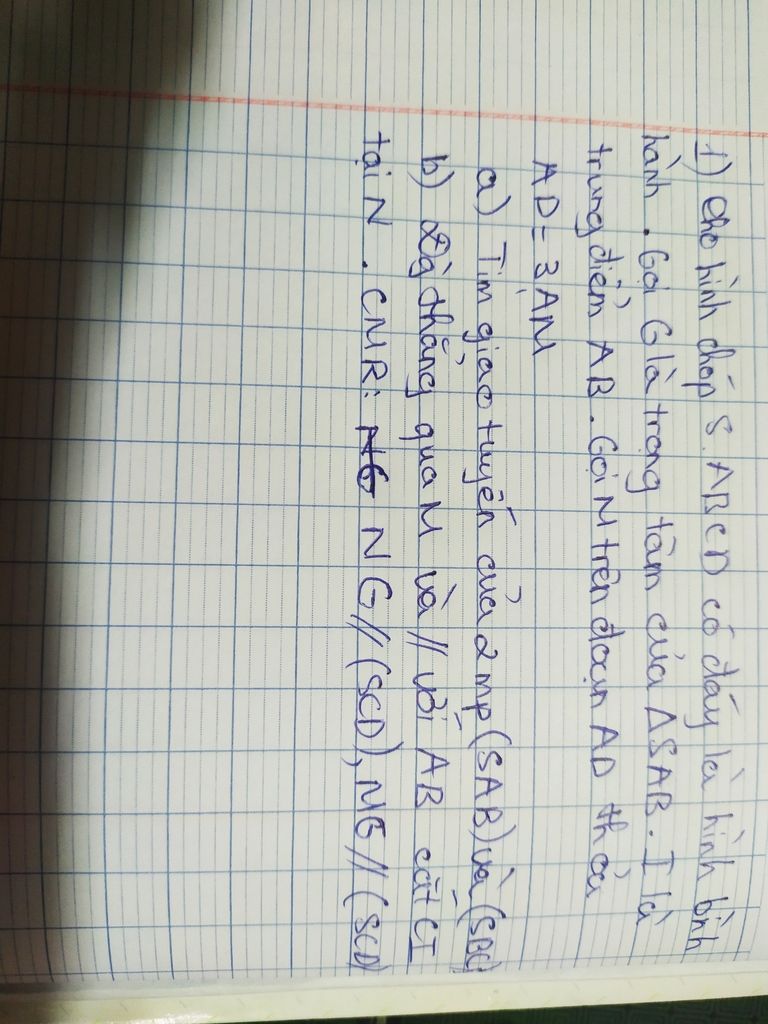 1) Cho hình chóp S.ABCD có đáy là hình bình
hành. Gọi G là trọng tâm của ΔSAB. I là
trung điểm AB. Gọi M trên đoạn AD thỏa
AD = 3AM
a) Tìm giao tuyến của 2 mp (SAB) và (SBC)
b) Đg thẳng qua M và // với AB cắt CI
tại N. CMR: NG NG // (SCD), MG // (SCD)